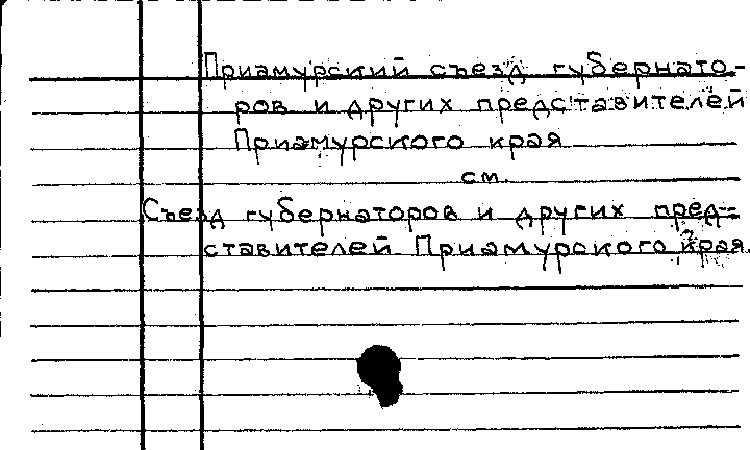 Приамурский съезд губернато-
ров и других представителей
Приамурского края
см.
Съезд губернаторов и других пред-
ставителей Приамурского края.